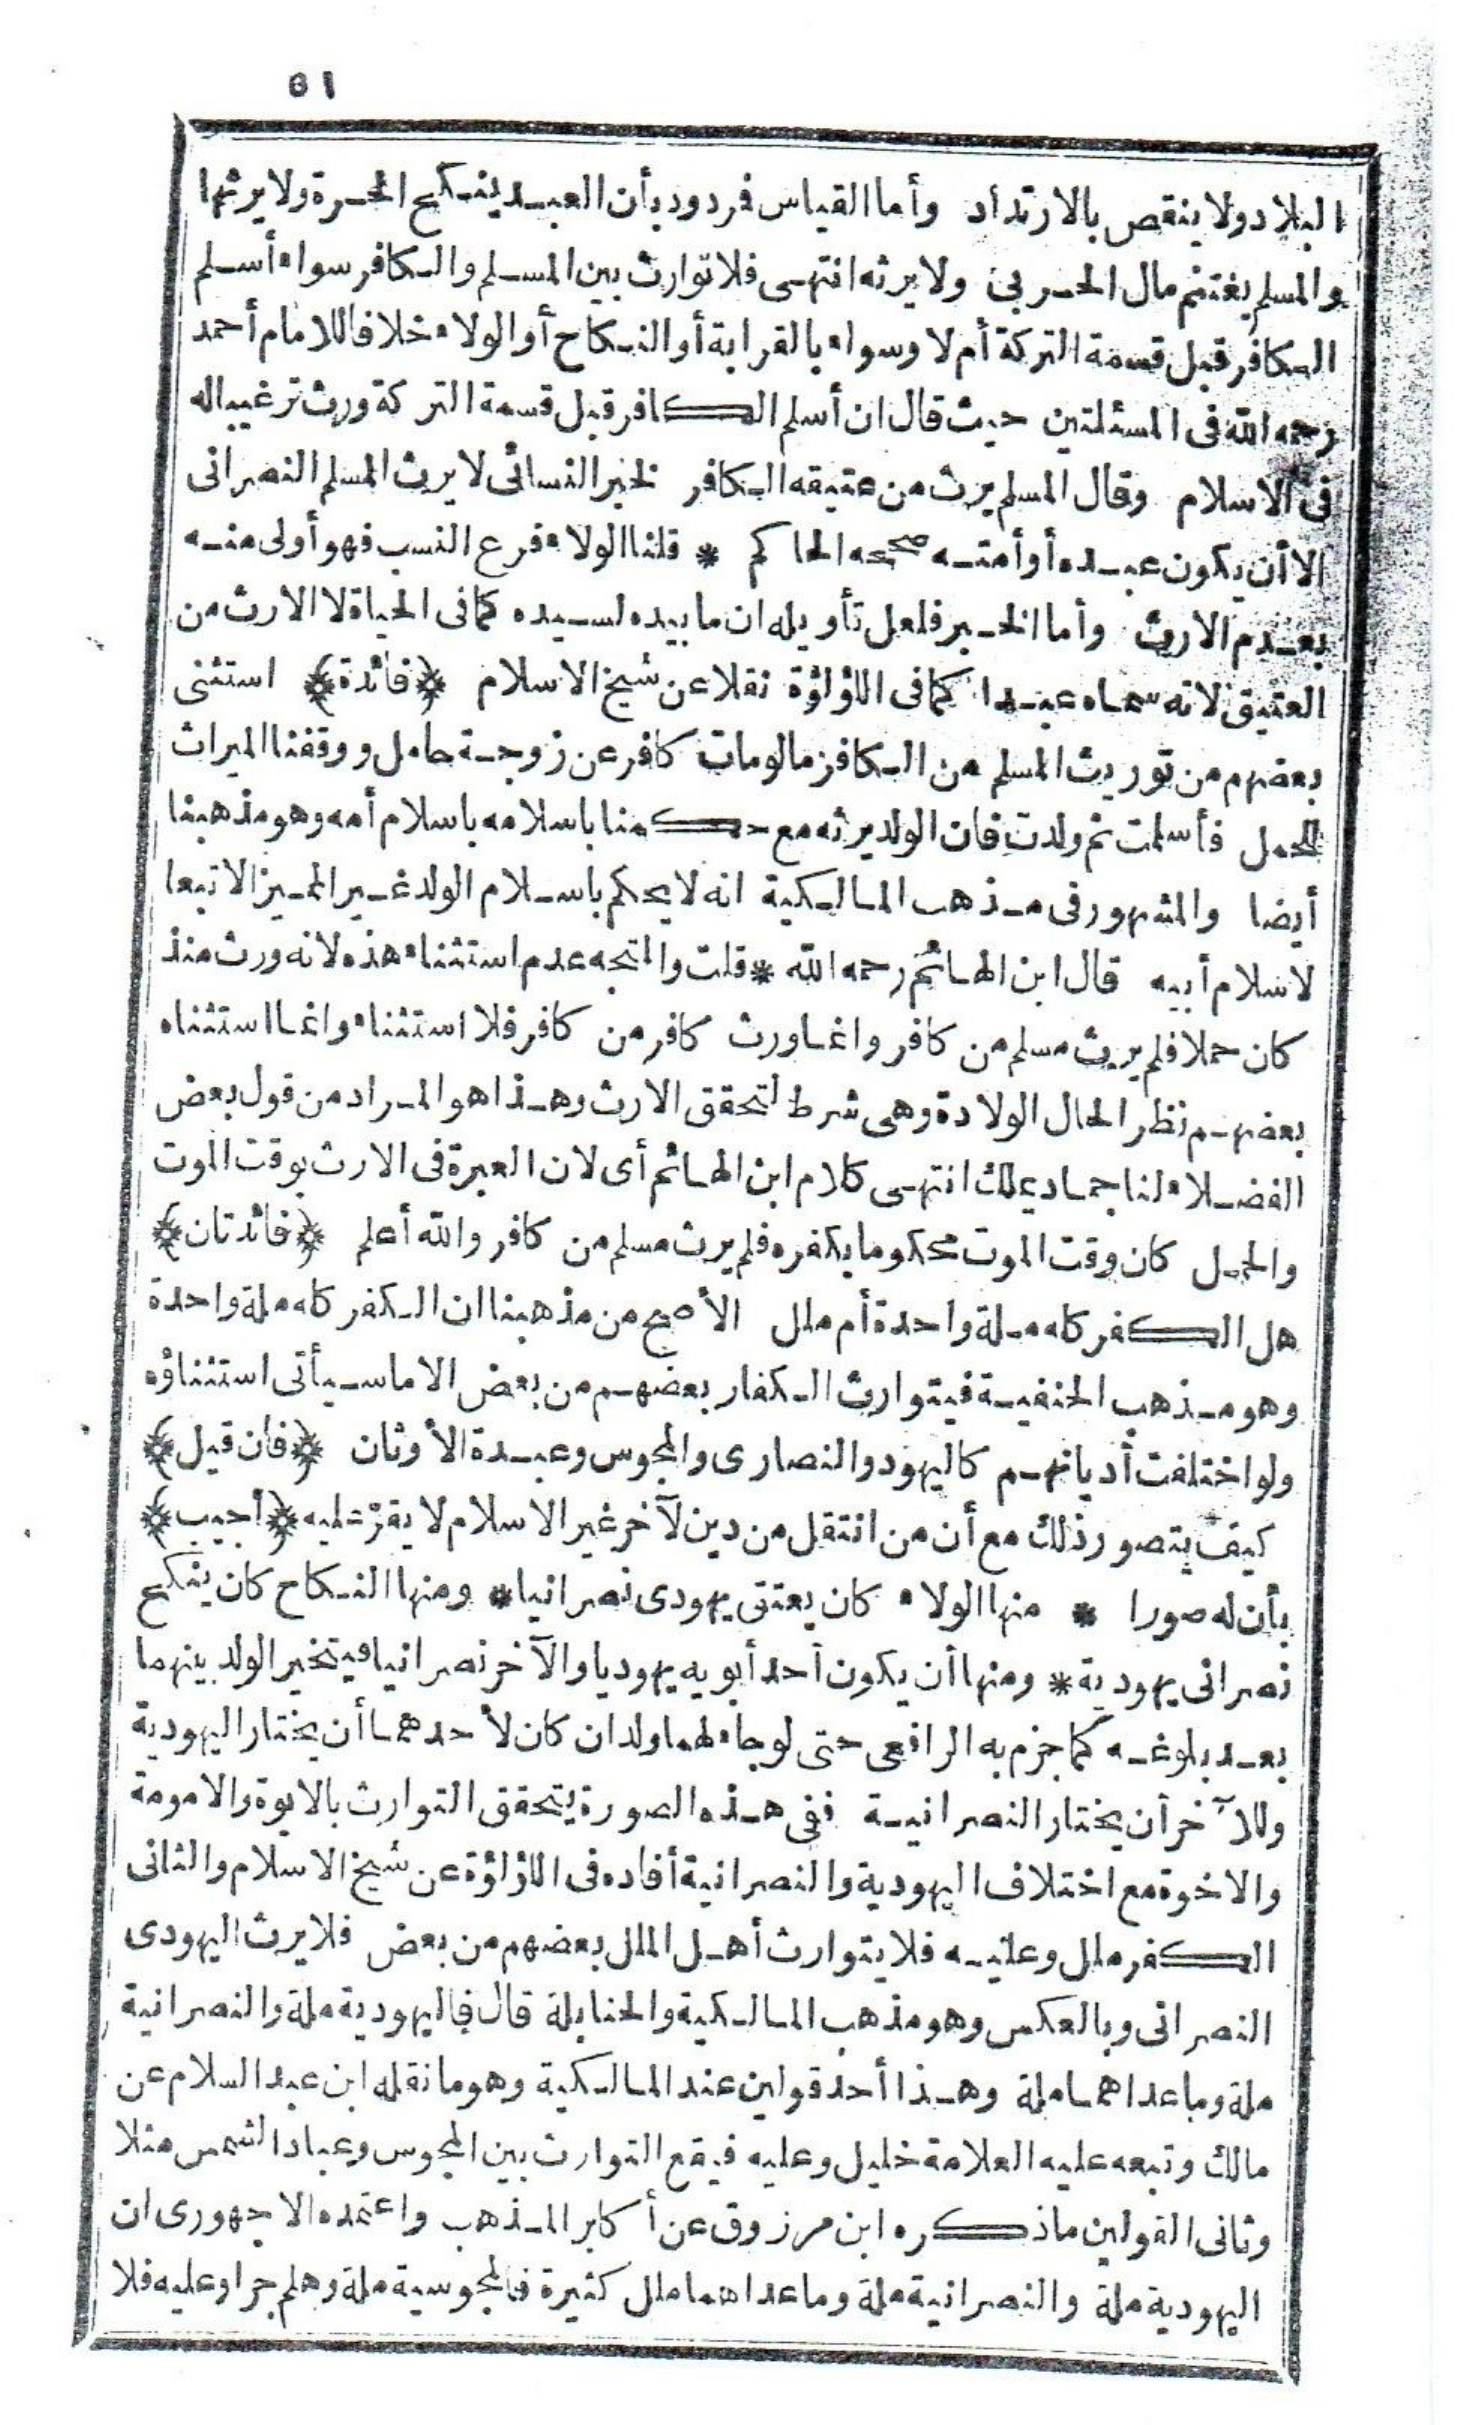 ٥١
البلاد ولا ينقص بالارتداد وأما القياس فردود بأن العبد ينكح الحرة ولا يرثها
والمسلم يغتنم مال الحربي ولا يرثه انتهى فلا توارث بين المسلم والكافر سواء أسلم
الكافر قبل قسمة التركة أم لا وسواء بالقرابة أو النكاح أو الولاء خلافا للامام أحمد
رحمه الله فى المسئلتين حيث قال ان أسلم الكافر قبل قسمة التركة ورث ترغيبا له
فى الاسلام وقال المسلم يرث من عتيقه الكافر لخبر النسائى لا يرث المسلم النصرانى
الا أن يكون عبده أو أمته صححه الحاكم * قلنا الولاء فرع النسب فهو أولى منه
بعدم الارث وأما الخبر فلعل تأويله ان ما بيده لسيده كما فى الحياة لا الارث من
العتيق لانه سماه عبدا كما فى اللؤلؤة نقلا عن شيخ الاسلام ﴿فائدة﴾ استثنى
بعضهم من توريث المسلم من الكافر مالو مات كافر عن زوجة حامل ووقفنا الميراث
للحمل فأسلمت ثم ولدت فان الولد يرثه مع حكمنا باسلامه باسلام أمه وهو مذهبنا
أيضا والمشهور فى مذهب المالكية انه لا يحكم باسلام الولد غير المميز الا تبعا
لاسلام أبيه قال ابن الهائم رحمه الله * قلت والمتجه عدم استثناء هذه لانه ورث منذ
كان حملا فلم يرث مسلم من كافر وانما ورث كافر من كافر فلا استثناء وانما استثناه
بعضهم نظر الحال الولادة وهى شرط لتحقق الارث وهذا هو المراد من قول بعض
الفضلاء لنا جماد يملك انتهى كلام ابن الهائم أى لان العبرة فى الارث بوقت الموت
والحمل كان وقت الموت محكوما بكفره فلم يرث مسلم من كافر والله أعلم ﴿فائدتان﴾
هل الكفر كله ملة واحدة أم ملل الأصح من مذهبنا ان الكفر كله ملة واحدة
وهو مذهب الحنفية فيتوارث الكفار بعضهم من بعض الا ما سيأتى استثناؤه
ولو اختلفت أديانهم كاليهود والنصارى والمجوس وعبدة الأوثان ﴿فان قيل﴾
كيف يتصور ذلك مع أن من انتقل من دين لآخر غير الاسلام لا يقر عليه ﴿أجيب﴾
بأن له صورا * منها الولاء كان يعتق يهودى نصرانيا * ومنها النكاح كان ينكح
نصرانى يهودية * ومنها أن يكون أحد أبويه يهوديا والآخر نصرانيا فيتخير الولد بينهما
بعد بلوغه كما جزم به الرافعى حتى لو جاء لهما ولدان كان لأحدهما أن يختار اليهودية
وللآخر أن يختار النصرانية ففى هذه الصورة يتحقق التوارث بالابوة والامومة
والاخوة مع اختلاف اليهودية والنصرانية أفاده فى اللؤلؤة عن شيخ الاسلام والثانى
الكفر ملل وعليه فلا يتوارث أهل الملل بعضهم من بعض فلا يرث اليهودى
النصرانى وبالعكس وهو مذهب المالكية والحنابلة قال فاليهودية ملة والنصرانية
ملة وما عداهما ملة وهذا أحد قولين عند المالكية وهو ما نقله ابن عبد السلام عن
مالك وتبعه عليه العلامة خليل وعليه فيقع التوارث بين المجوس وعباد الشمس مثلا
وثانى القولين ما ذكره ابن مرزوق عن أكابر المذهب واعتمده الاجهورى ان
اليهودية ملة والنصرانية ملة وما عداهما ملل كثيرة فالمجوسية ملة وهلم جرا وعليه فلا